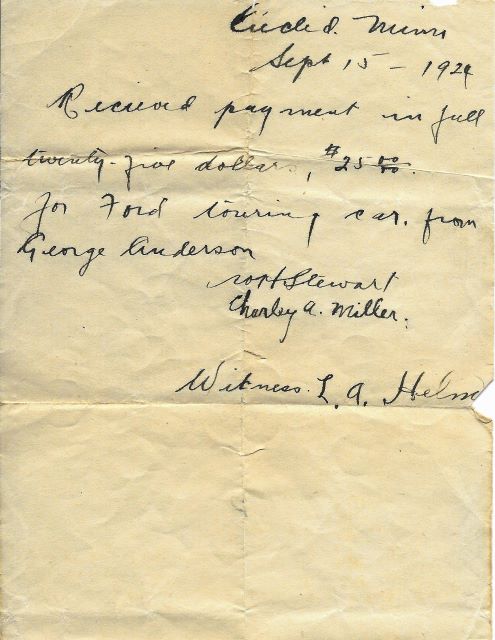 Euclid. Minn
Sept 15 - 1924
Recieved payment in full
twenty-five dollars, $25 00/00.
for Ford touring car. from
George Anderson
Stewart
Charley A. Miller.
Witness. L. A. Helm